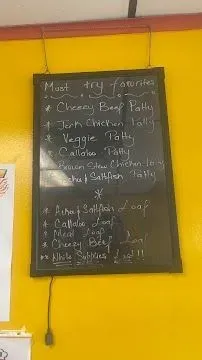 Must try favorites
* Cheezy Beef Patty
* Jerk Chicken Patty
* Veggie Patty
* Callaloo Patty
* Brown Stew Chicken Patty
* Acke/Saltfish Patty
*
* Acke/Saltfish Loaf
* Callaloo Loaf
* Meat Loaf
* Cheezy Beef Loaf
** While Supplies Last!!!